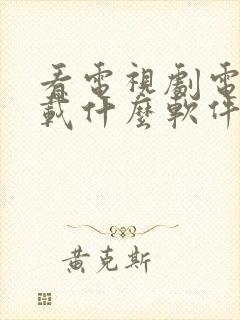 看電視劇電
載什麼軟件
黃克斯